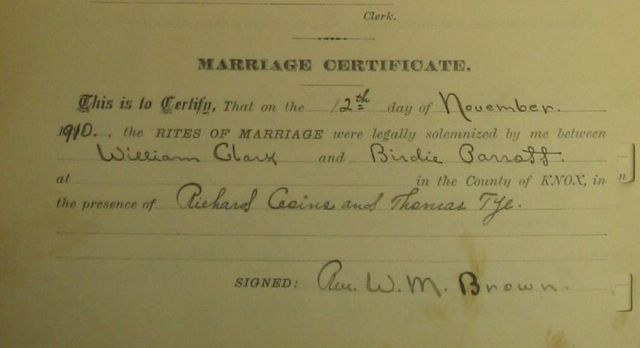 Clerk.
MARRIAGE CERTIFICATE.
This is to Certify, That on the 12th day of November.
1910. , the RITES OF MARRIAGE were legally solemnized by me between
William Clark and Birdie Parrott.
at in the County of KNOX, in
the presence of Richard and Thomas Tye.
SIGNED: Rev. W. M. Brown.